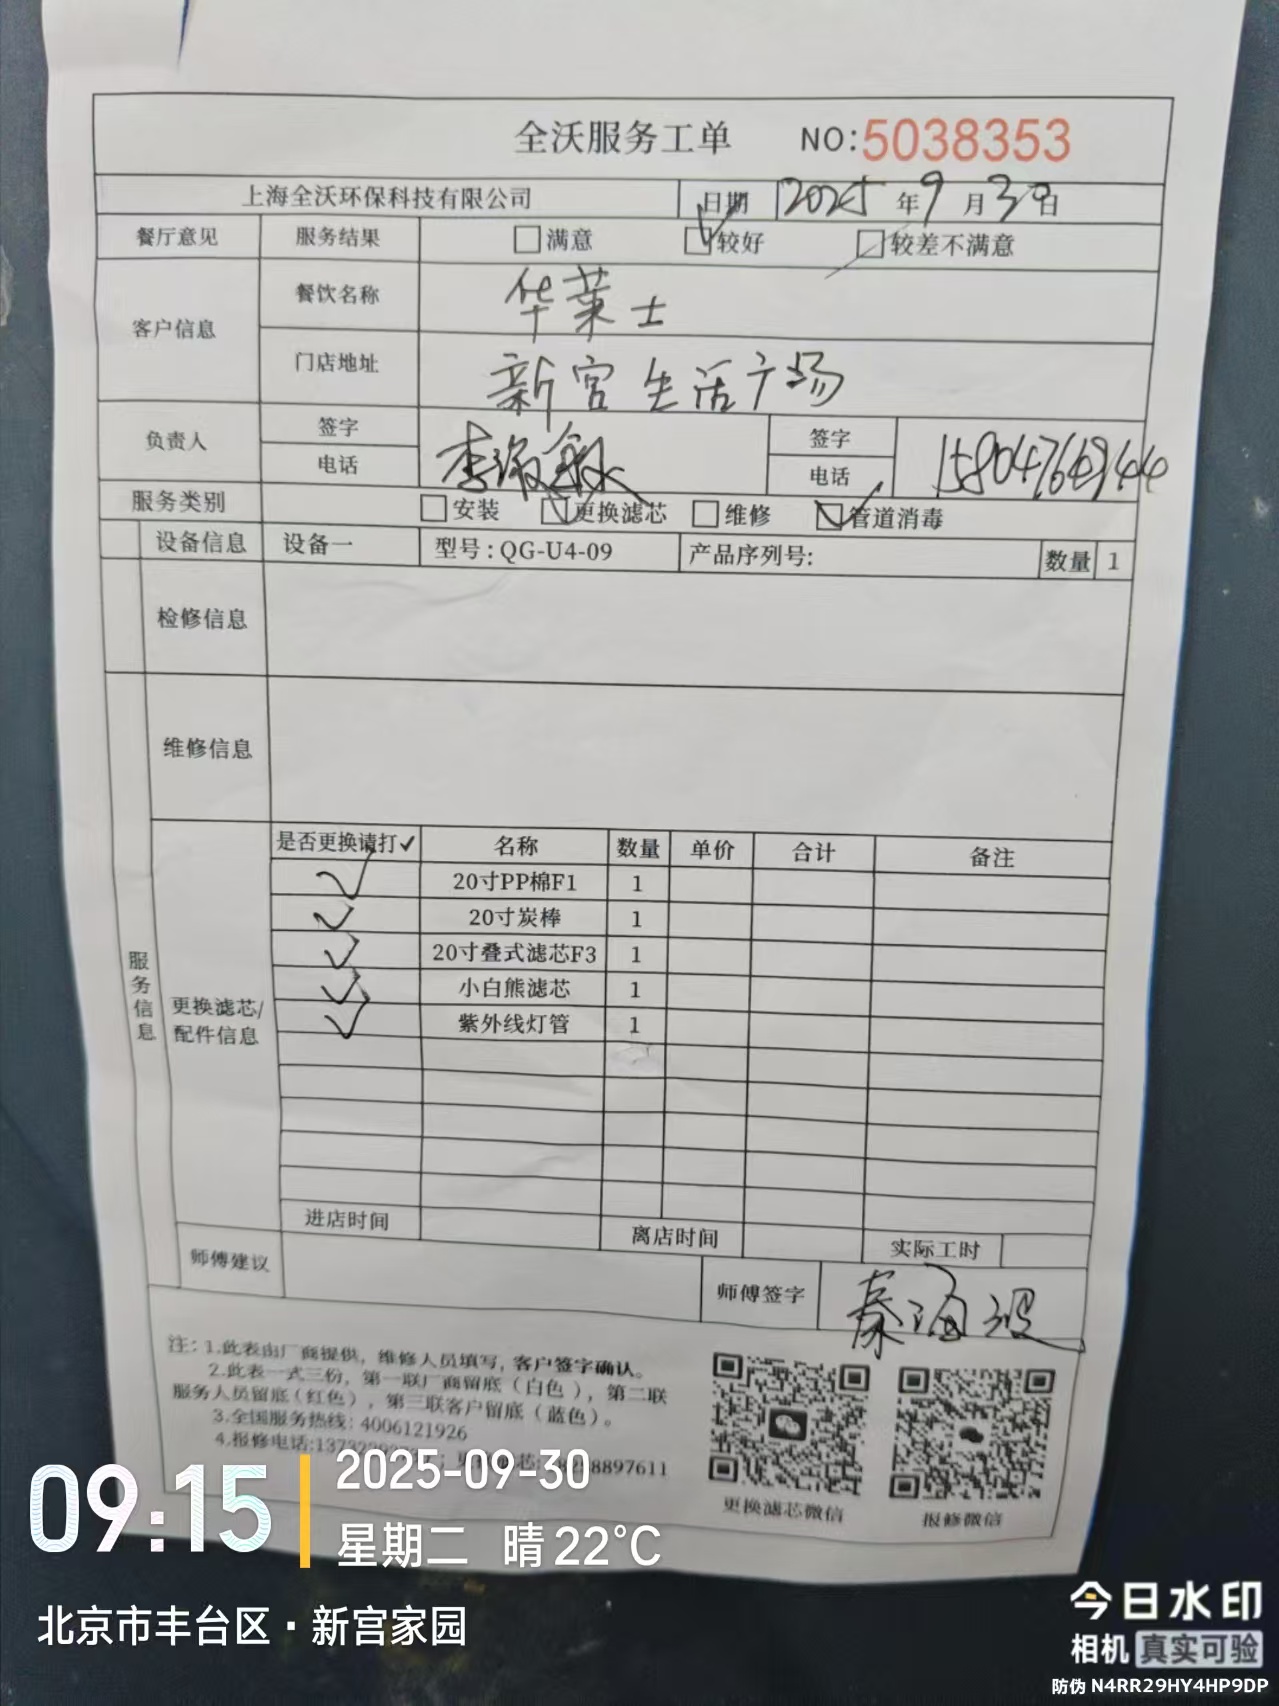 全沃服务工单 NO:5038353
上海全沃环保科技有限公司 日期 2025年9月30日
餐厅意见 服务结果 □满意 ☑较好 □较差不满意
客户信息 餐饮名称 华莱士
门店地址 新宫生活广场
负责人 签字 李 敏 签字
电话 电话 15804764944
服务类别 □安装 ☑更换滤芯 □维修 ☑管道消毒
设备信息 设备一 型号:QG-U4-09 产品序列号: 数量 1
检修信息
维修信息
服务信息
更换滤芯/配件信息
是否更换请打✓ 名称 数量 单价 合计 备注
✓ 20寸PP棉F1 1
✓ 20寸炭棒 1
✓ 20寸叠式滤芯F3 1
✓ 小白熊滤芯 1
✓ 紫外线灯管 1
进店时间 离店时间 实际工时
师傅建议 师傅签字 秦海波
注:1.此表由厂商提供,维修人员填写,客户签字确认。
2.此表一式三份,第一联厂商留底(白色),第二联
服务人员留底(红色),第三联客户留底(蓝色)。
3.全国服务热线:4006121926
4.报修电话:
更换滤芯微信 报修微信
09:15
2025-09-30
星期二 晴 22°C
北京市丰台区·新宫家园
今日水印
相机 真实可验
防伪 N4RR29HY4HP9DP